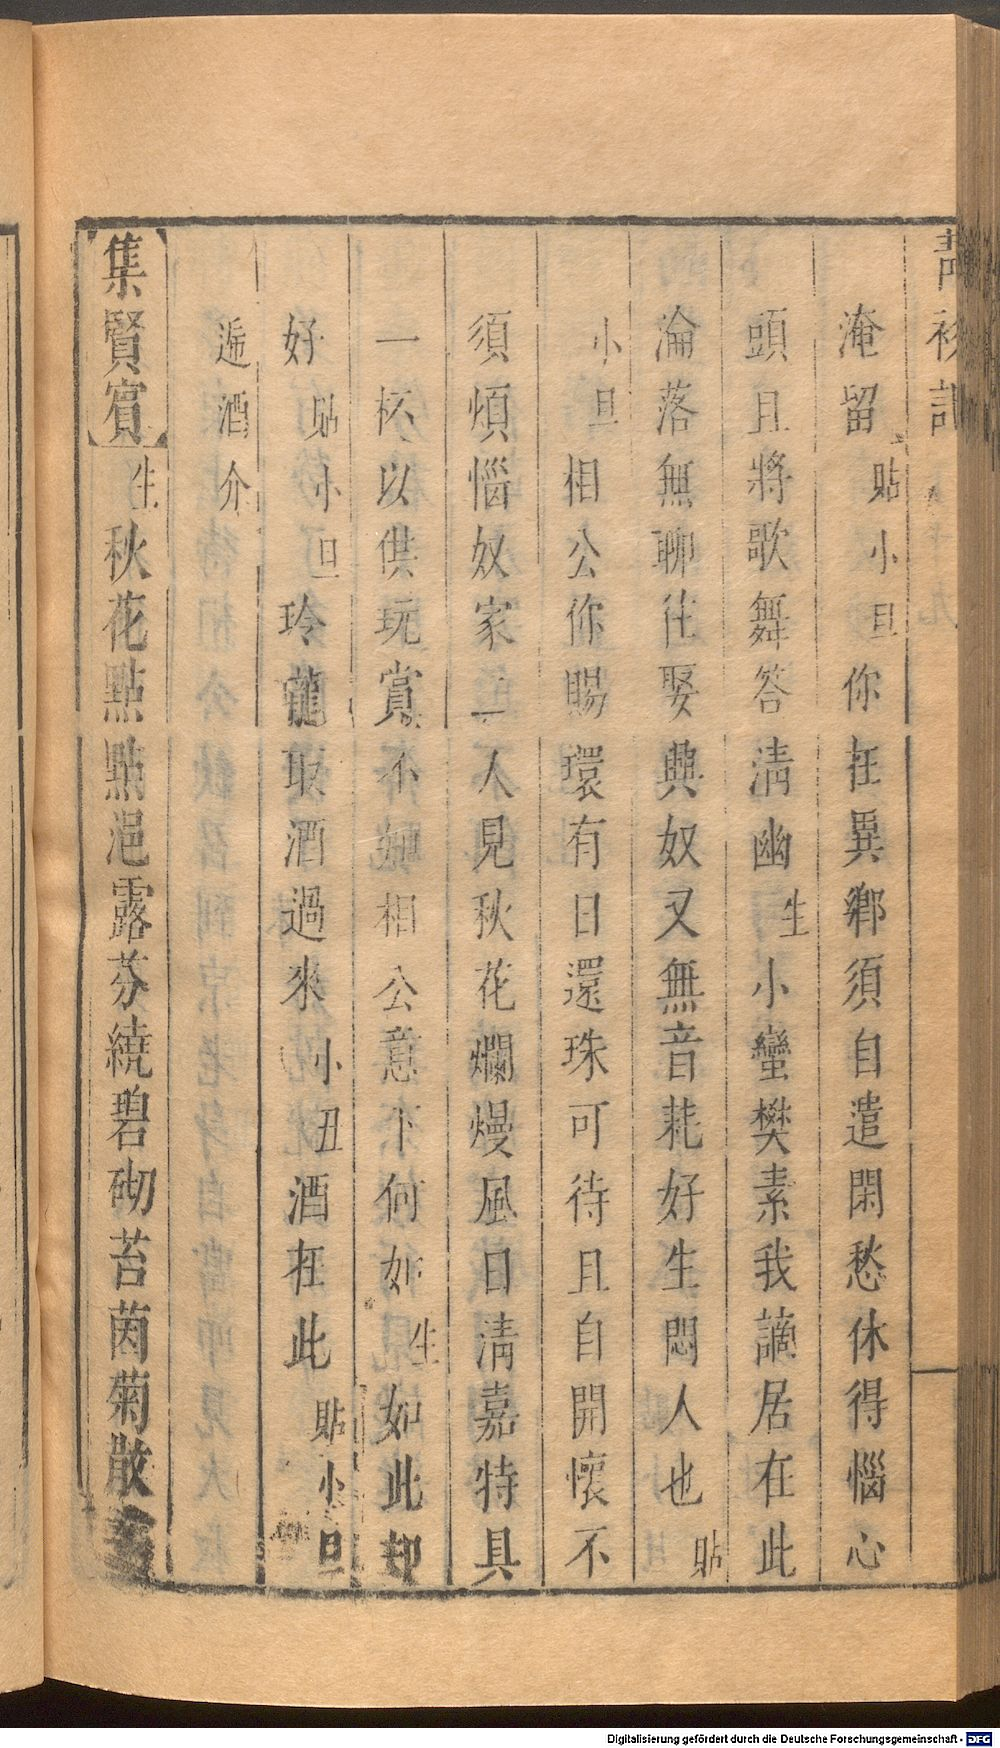 淹留貼小旦你在異鄉須自遣閑愁休得惱心
頭且將歌舞答清幽生小蠻樊素我謫居在此
淪落無聊徃娶興奴又無音耗好生悶人也貼
小旦相公你賜環有日還珠可待且自開懷不
須煩惱奴家二人見秋花爛熳風日清嘉特具
一杯以供玩賞不知相公意下何如生如此却
好貼小旦玲瓏取酒過來小丑酒在此貼小旦
遞酒介
集賢賓生秋花點點浥露芬繞碧砌苔茵菊散
Digitalisierung gefördert durch die Deutsche Forschungsgemeinschaft - DFG